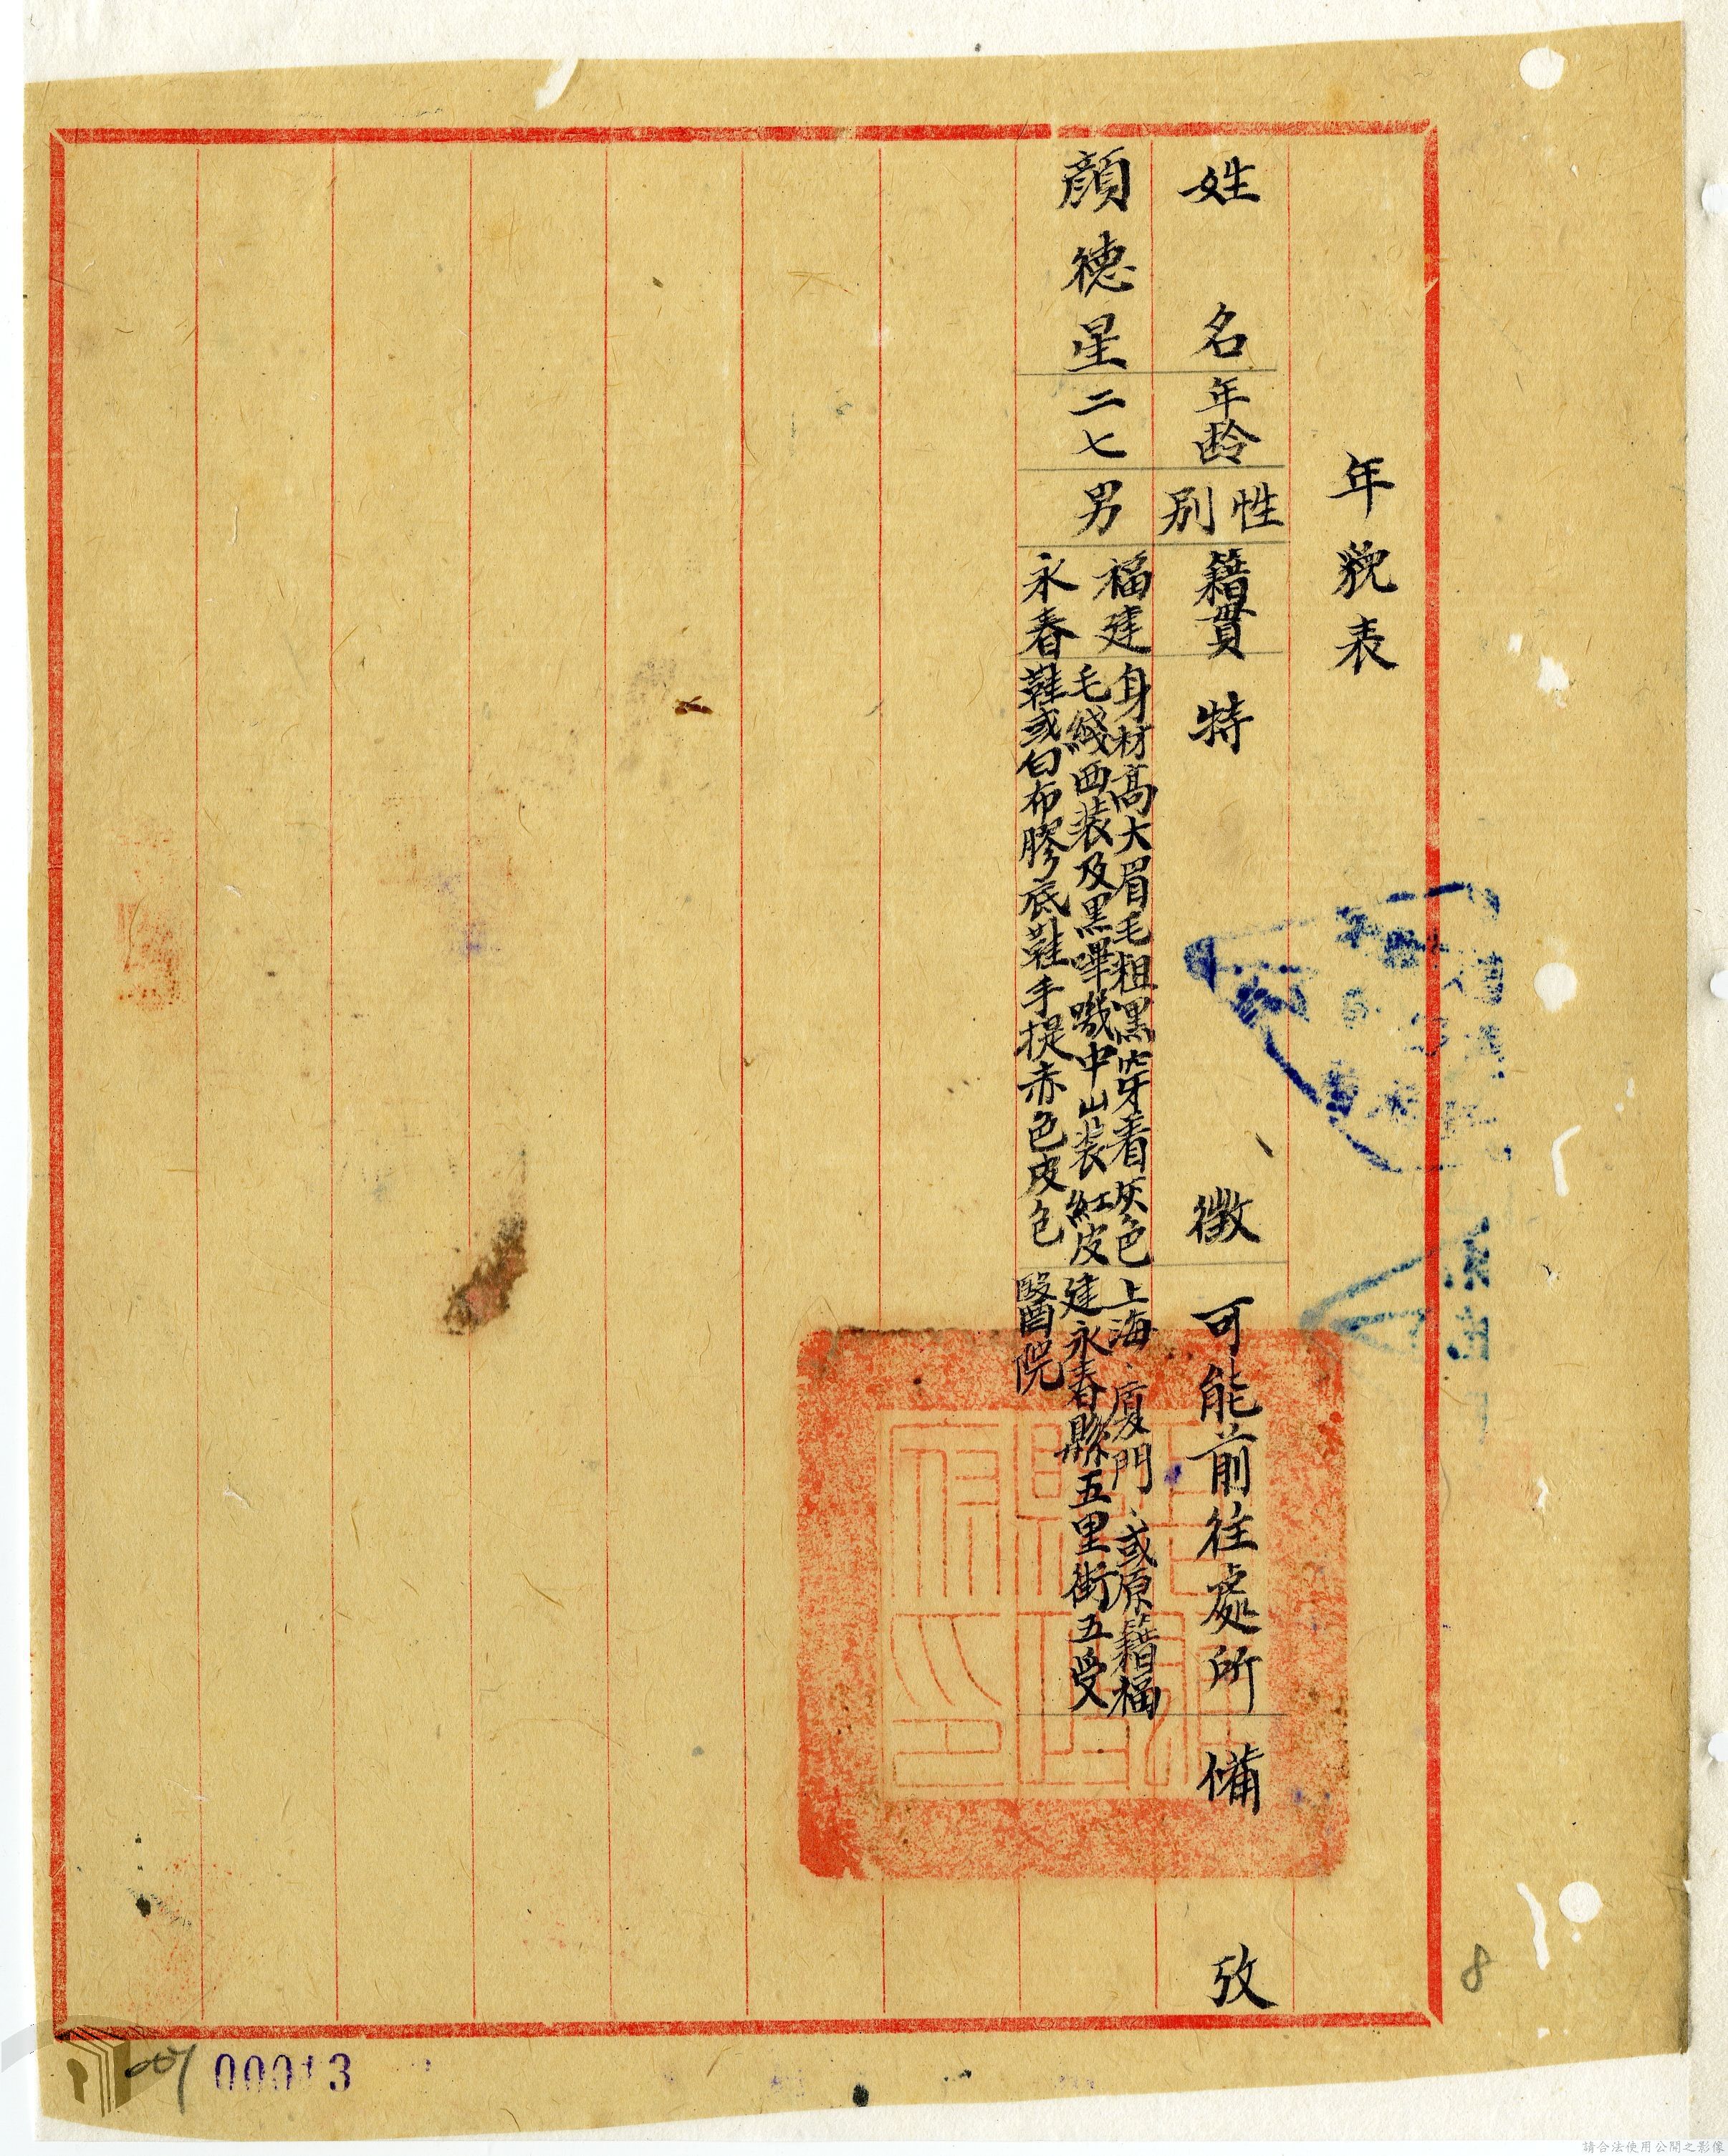 年貌表
姓名
年齡
性別
籍貫
特徵
可能前往處所
備攷
顏德星
二七
男
福建
永春
身材高大眉毛粗黑穿着灰色
毛綫西裝及黑嗶嘰中山裝紅皮
鞋或白布膠底鞋手提赤色皮包
上海、廈門、或原籍福
建永春縣五里街五受
醫院
8
00013
請合法使用公開之影像